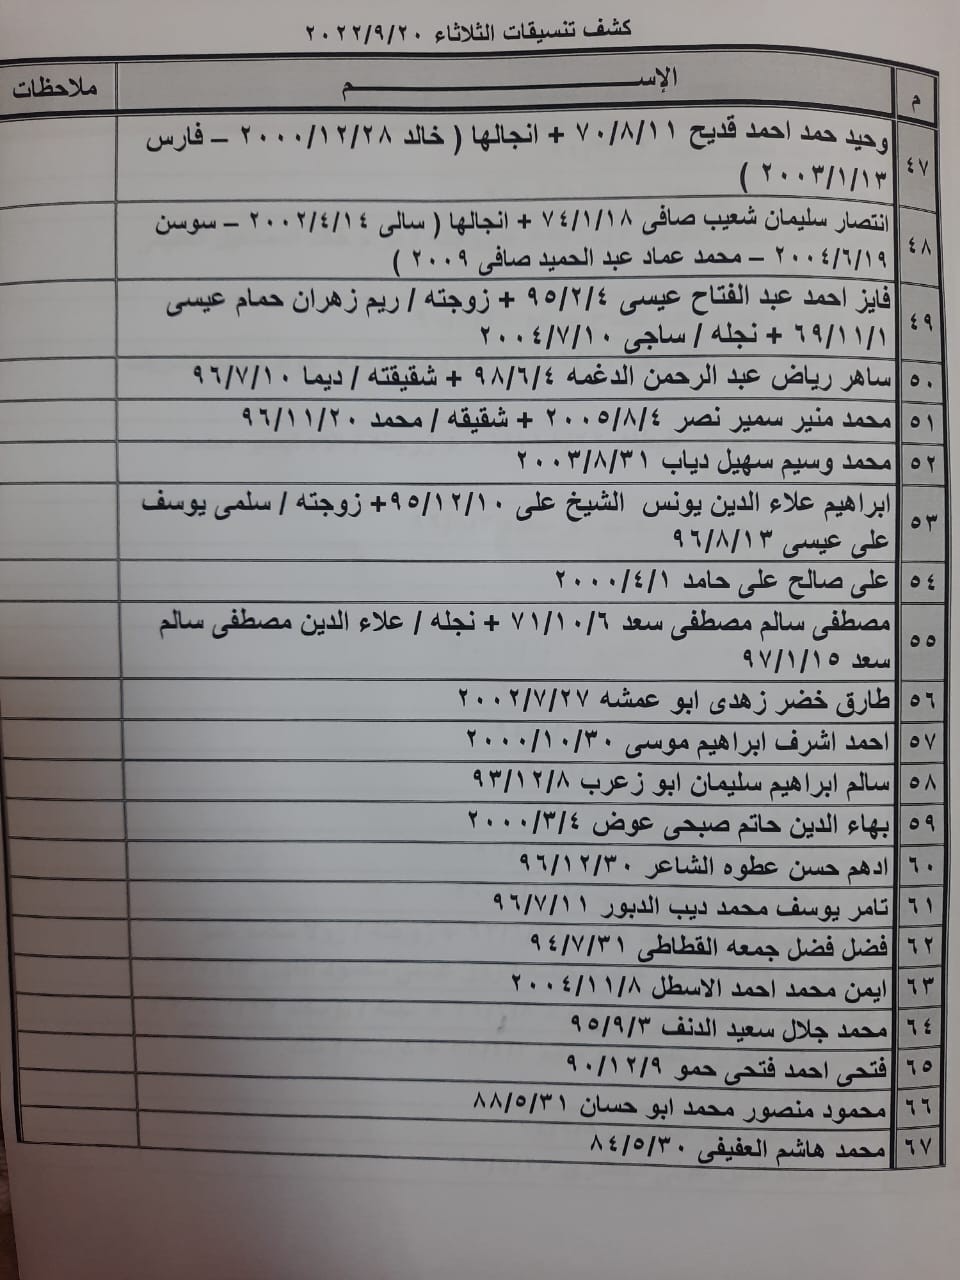 كشف تنسيقات الثلاثاء ٢٠٢٢/٩/٢٠
م الإســـــــــم ملاحظات
٤٧ وحيد حمد احمد قديح ٧٠/٨/١١ + انجالها ( خالد ٢٠٠٠/١٢/٢٨ – فارس
٢٠٠٣/١/١٣ )
٤٨ انتصار سليمان شعيب صافى ٧٤/١/١٨ + انجالها ( سالى ٢٠٠٢/٤/١٤ – سوسن
٢٠٠٤/٦/١٩ – محمد عماد عبد الحميد صافى ٢٠٠٩ )
٤٩ فايز احمد عبد الفتاح عيسى ٩٥/٢/٤ + زوجته / ريم زهران حمام عيسى
٦٩/١١/١ + نجله / ساجى ٢٠٠٤/٧/١٠
٥٠ ساهر رياض عبد الرحمن الدغمه ٩٨/٦/٤ + شقيقته / ديما ٩٦/٧/١٠
٥١ محمد منير سمير نصر ٢٠٠٥/٨/٤ + شقيقه / محمد ٩٦/١١/٢٠
٥٢ محمد وسيم سهيل دياب ٢٠٠٣/٨/٣١
٥٣ ابراهيم علاء الدين يونس الشيخ على ٩٥/١٢/١٠+ زوجته / سلمى يوسف
على عيسى ٩٦/٨/١٣
٥٤ على صالح على حامد ٢٠٠٠/٤/١
٥٥ مصطفى سالم مصطفى سعد ٧١/١٠/٦ + نجله / علاء الدين مصطفى سالم
سعد ٩٧/١/١٥
٥٦ طارق خضر زهدى ابو عمشه ٢٠٠٢/٧/٢٧
٥٧ احمد اشرف ابراهيم موسى ٢٠٠٠/١٠/٣٠
٥٨ سالم ابراهيم سليمان ابو زعرب ٩٣/١٢/٨
٥٩ بهاء الدين حاتم صبحى عوض ٢٠٠٠/٣/٤
٦٠ ادهم حسن عطوه الشاعر ٩٦/١٢/٣٠
٦١ تامر يوسف محمد ديب الدبور ٩٦/٧/١١
٦٢ فضل فضل جمعه القطاطى ٩٤/٧/٣١
٦٣ ايمن محمد احمد الاسطل ٢٠٠٤/١١/٨
٦٤ محمد جلال سعيد الدنف ٩٥/٩/٣
٦٥ فتحى احمد فتحى حمو ٩٠/١٢/٩
٦٦ محمود منصور محمد ابو حسان ٨٨/٥/٣١
٦٧ محمد هاشم العفيفى ٨٤/٥/٣٠